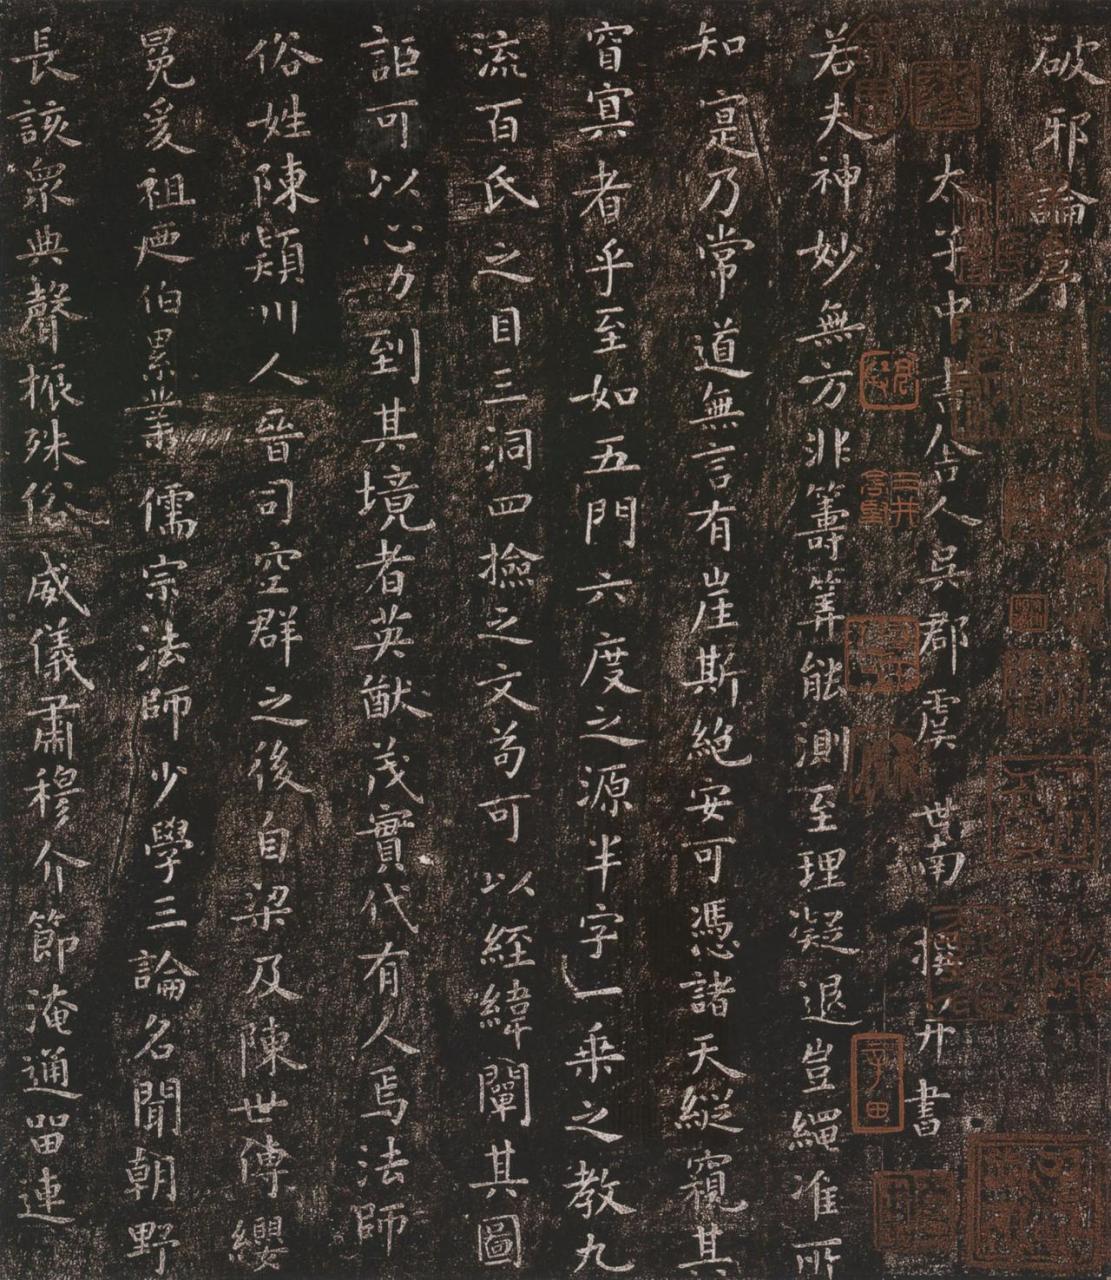 破邪論序
太子中書舍人吳郡虞世南撰并書
若夫神妙無方非籌筭能測至理凝邈豈繩准所
知寔乃常道無言有崖斯絕安可憑諸天縱窺其
窅冥者乎至如五門六度之源半字一乗之教九
流百氏之目三洞四撿之文苟可以經緯闡其圖
詎可以心力到其境者英猷茂實代有人焉法師
俗姓陳潁川人晉司空群之後自梁及陳世傳纓
冕爰祖迊伯累業儒宗法師少學三論名聞朝野
長該衆典聲振殊俗威儀肅穆介節淹通留連
三井
子田